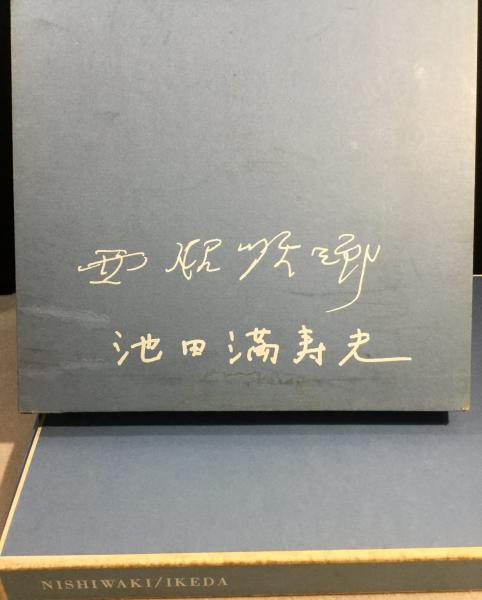 西脇順三郎
池田満寿夫
NISHIWAKI/IKEDA